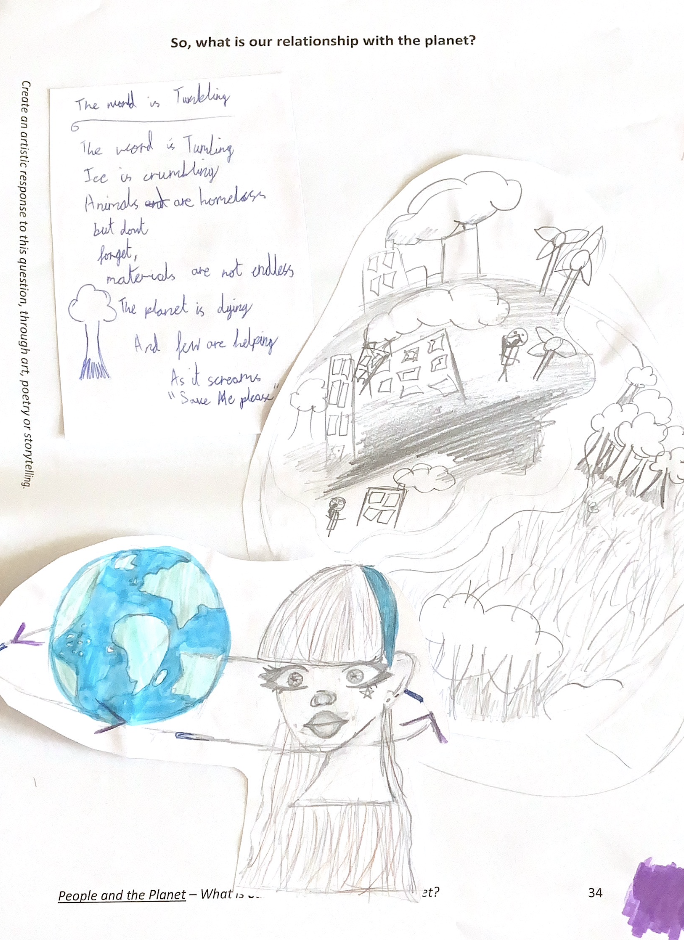 So, what is our relationship with the planet?
Create an artistic response to this question, through art, poetry or storytelling.
The world is Tumbling
The word is Tumling
Ice is crumbling
Animals are homeless
but dont
forget,
materials are not endless
The planet is dying
And few are helping
As it screams
"Save Me please"
People and the Planet – What is
et?
34